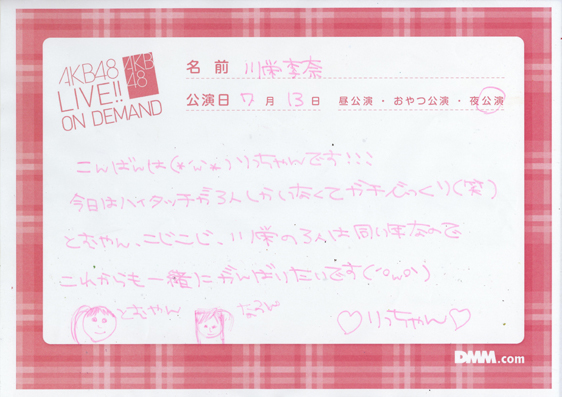 AKB48
LIVE!!
ON DEMAND
AKB
48
名前 川栄李奈
公演日 7月13日 昼公演・おやつ公演・夜公演
こんばんは(*'ω'*)りっちゃんです!!!
今日はハイタッチが3人しかいなくてガチびっくり(笑)
とむやん、こじこじ、川栄の3人は同い年なので
これからも一緒にがんばりたいです(^oωo^)
とむやん なるん ♡りっちゃん♡
DMM.com